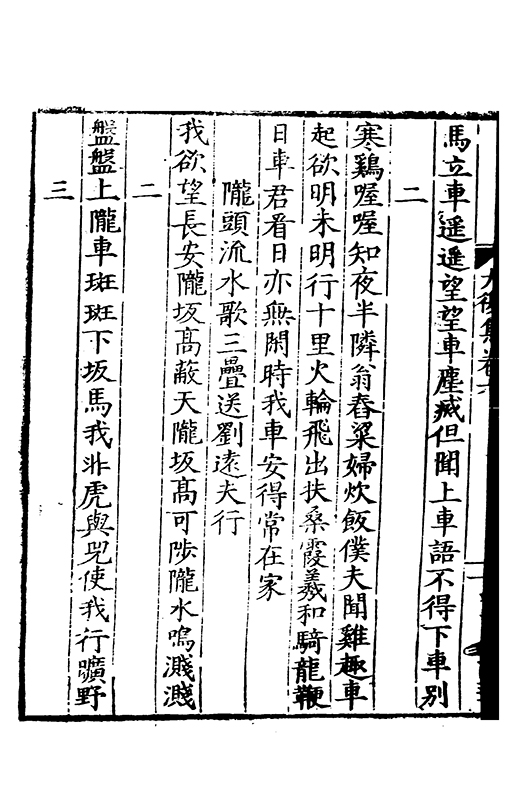 馬立車遥遥望望車塵滅但聞上車語不得下車别
二
寒鷄喔喔知夜半隣翁舂粱婦炊飯僕夫聞雞趣車
起欲明未明行十里火輪飛出扶桑霞羲和騎龍鞭
日車君看日亦無閑時我車安得常在家
隴頭流水歌三疊送劉遠夫行
我欲望長安隴坂髙蔽天隴坂髙可陟隴水嗚濺濺
二
盤盤上隴車班班下坂馬我非虎與兕使我行曠野
三